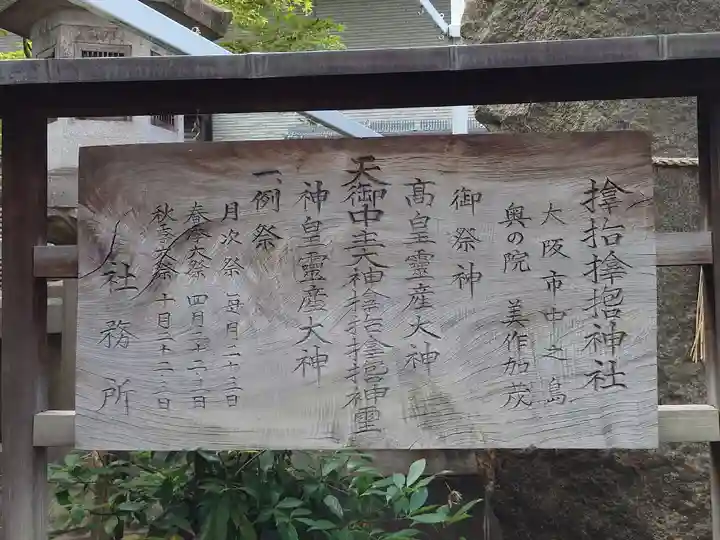 𪮷抬𪮷𪮇神社
大阪市中之島
奥の院 美作加茂
御祭神
高皇靈産大神
天御中主大神𪮷抬𪮷𪮇神霊
神皇靈産大神
一、例祭
月次祭 毎月二十三日
春季大祭 四月二十二、三日
秋季大祭 十月二十二、三日
社務所